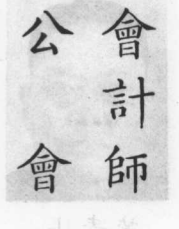 會計師
公會